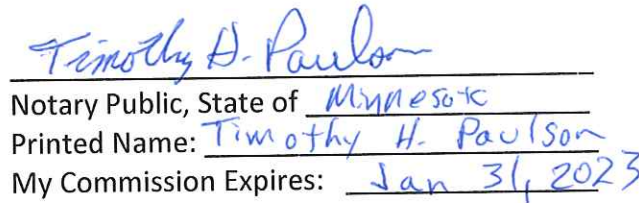 Timothy H. Paulson
Notary Public, State of Minnesota
Printed Name: Timothy H. Paulson
My Commission Expires: Jan 31, 2023